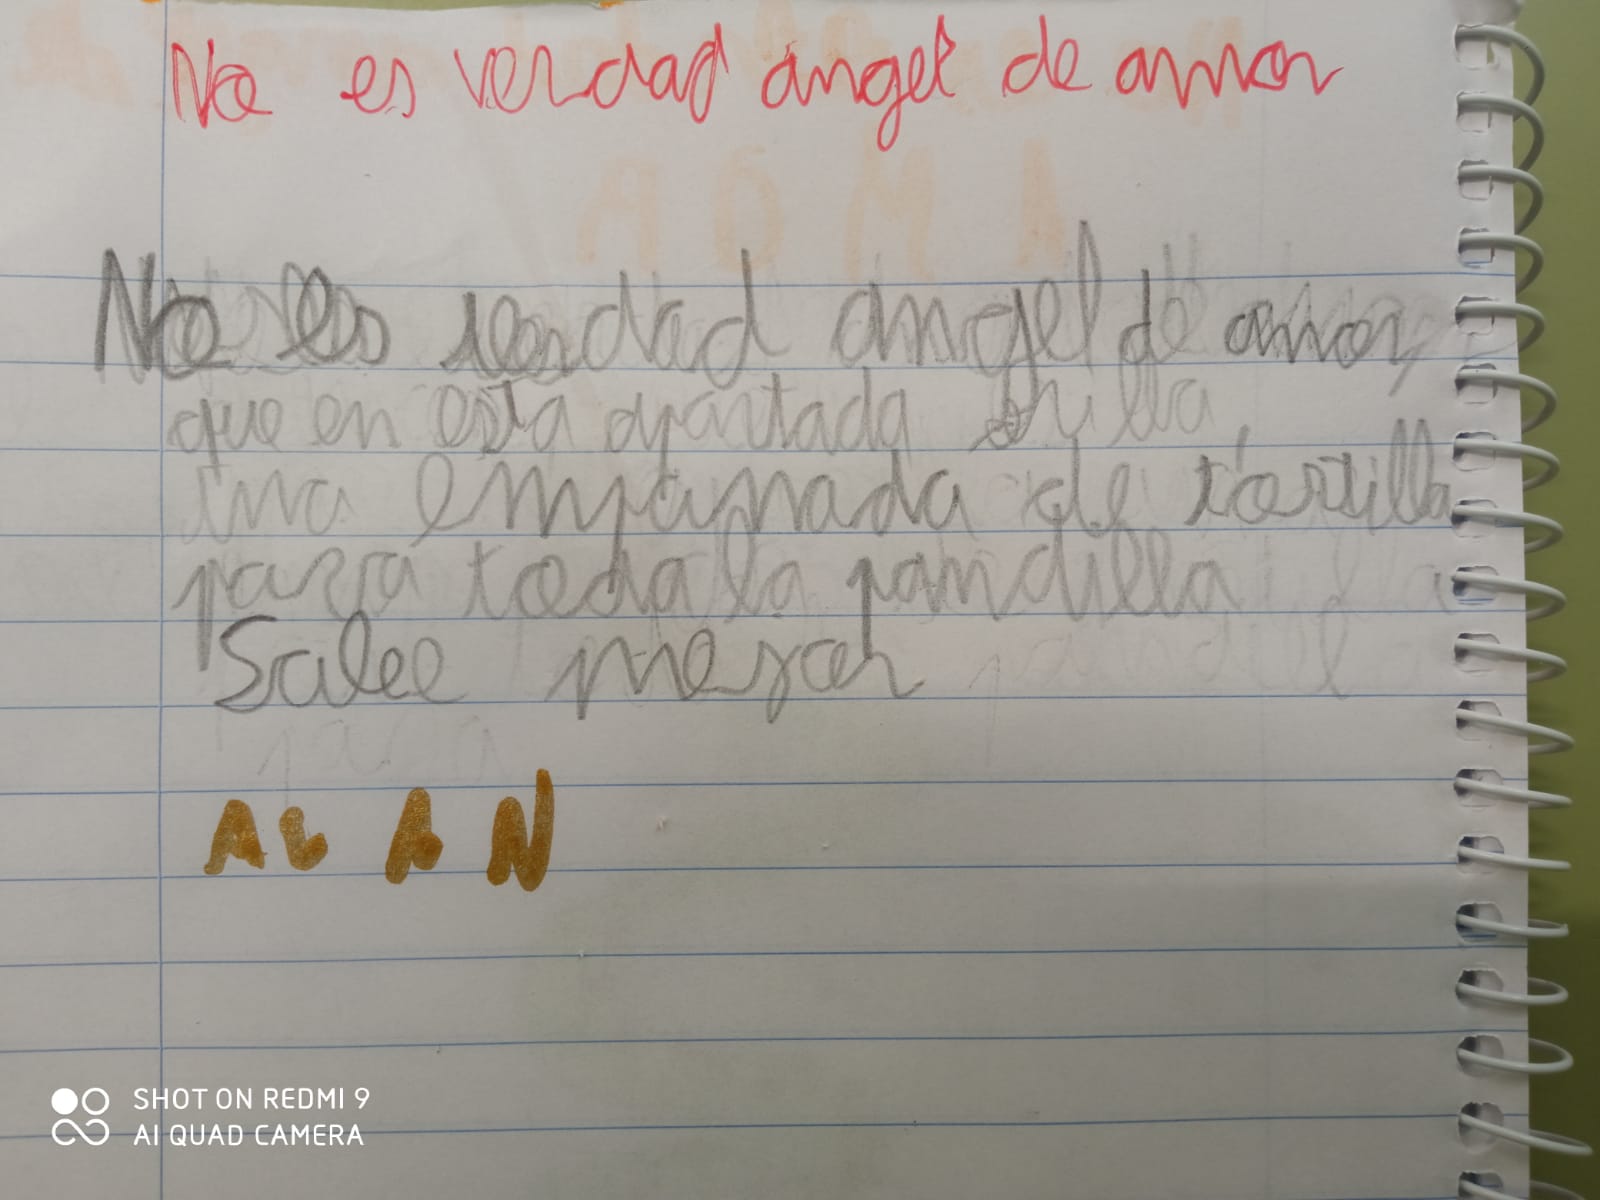 No es verdad ángel de amor
No es verdad ángel de amor,
que en esta apartada orilla,
una empanada de tortilla
para toda la pandilla
Sale mejor
ALAN
SHOT ON REDMI 9
AI QUAD CAMERA